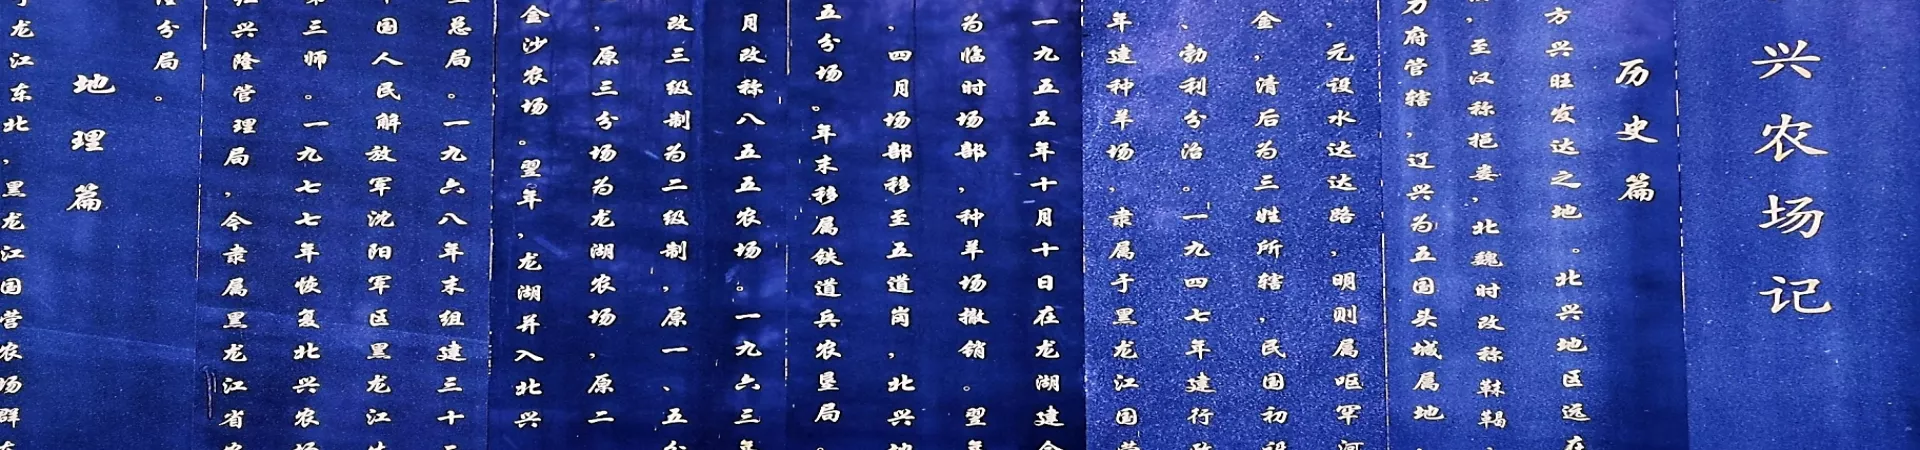 兴农场记
历史篇
方兴旺发达之地。北兴地区远在
，至汉称挹娄，北魏时改称靺鞨，
府管辖，辽兴为五国头城属地，
，元设水达达路，明则属呕罕河
金，清后为三姓所辖，民国初设
、勃利分治。一九四七年建行政
年建种羊场，隶属于黑龙江国营
一九五五年十月十日在龙湖建
为临时场部，种羊场撤销。翌年
，四月场部移至五道岗，北兴地
五分场。年末移属铁道兵农垦局。
月改称八五五农场。一九六三年
改三级制为二级制，原一、五分
，原三分场为龙湖农场，原二
金沙农场。翌年，龙湖并入北兴
总局。一九六八年末组建三十二
国人民解放军沈阳军区黑龙江生
三师。一九七七年恢复北兴农场
兴隆管理局，今隶属黑龙江省农
分局。
地理篇
龙江东北，黑龙江国营农场群